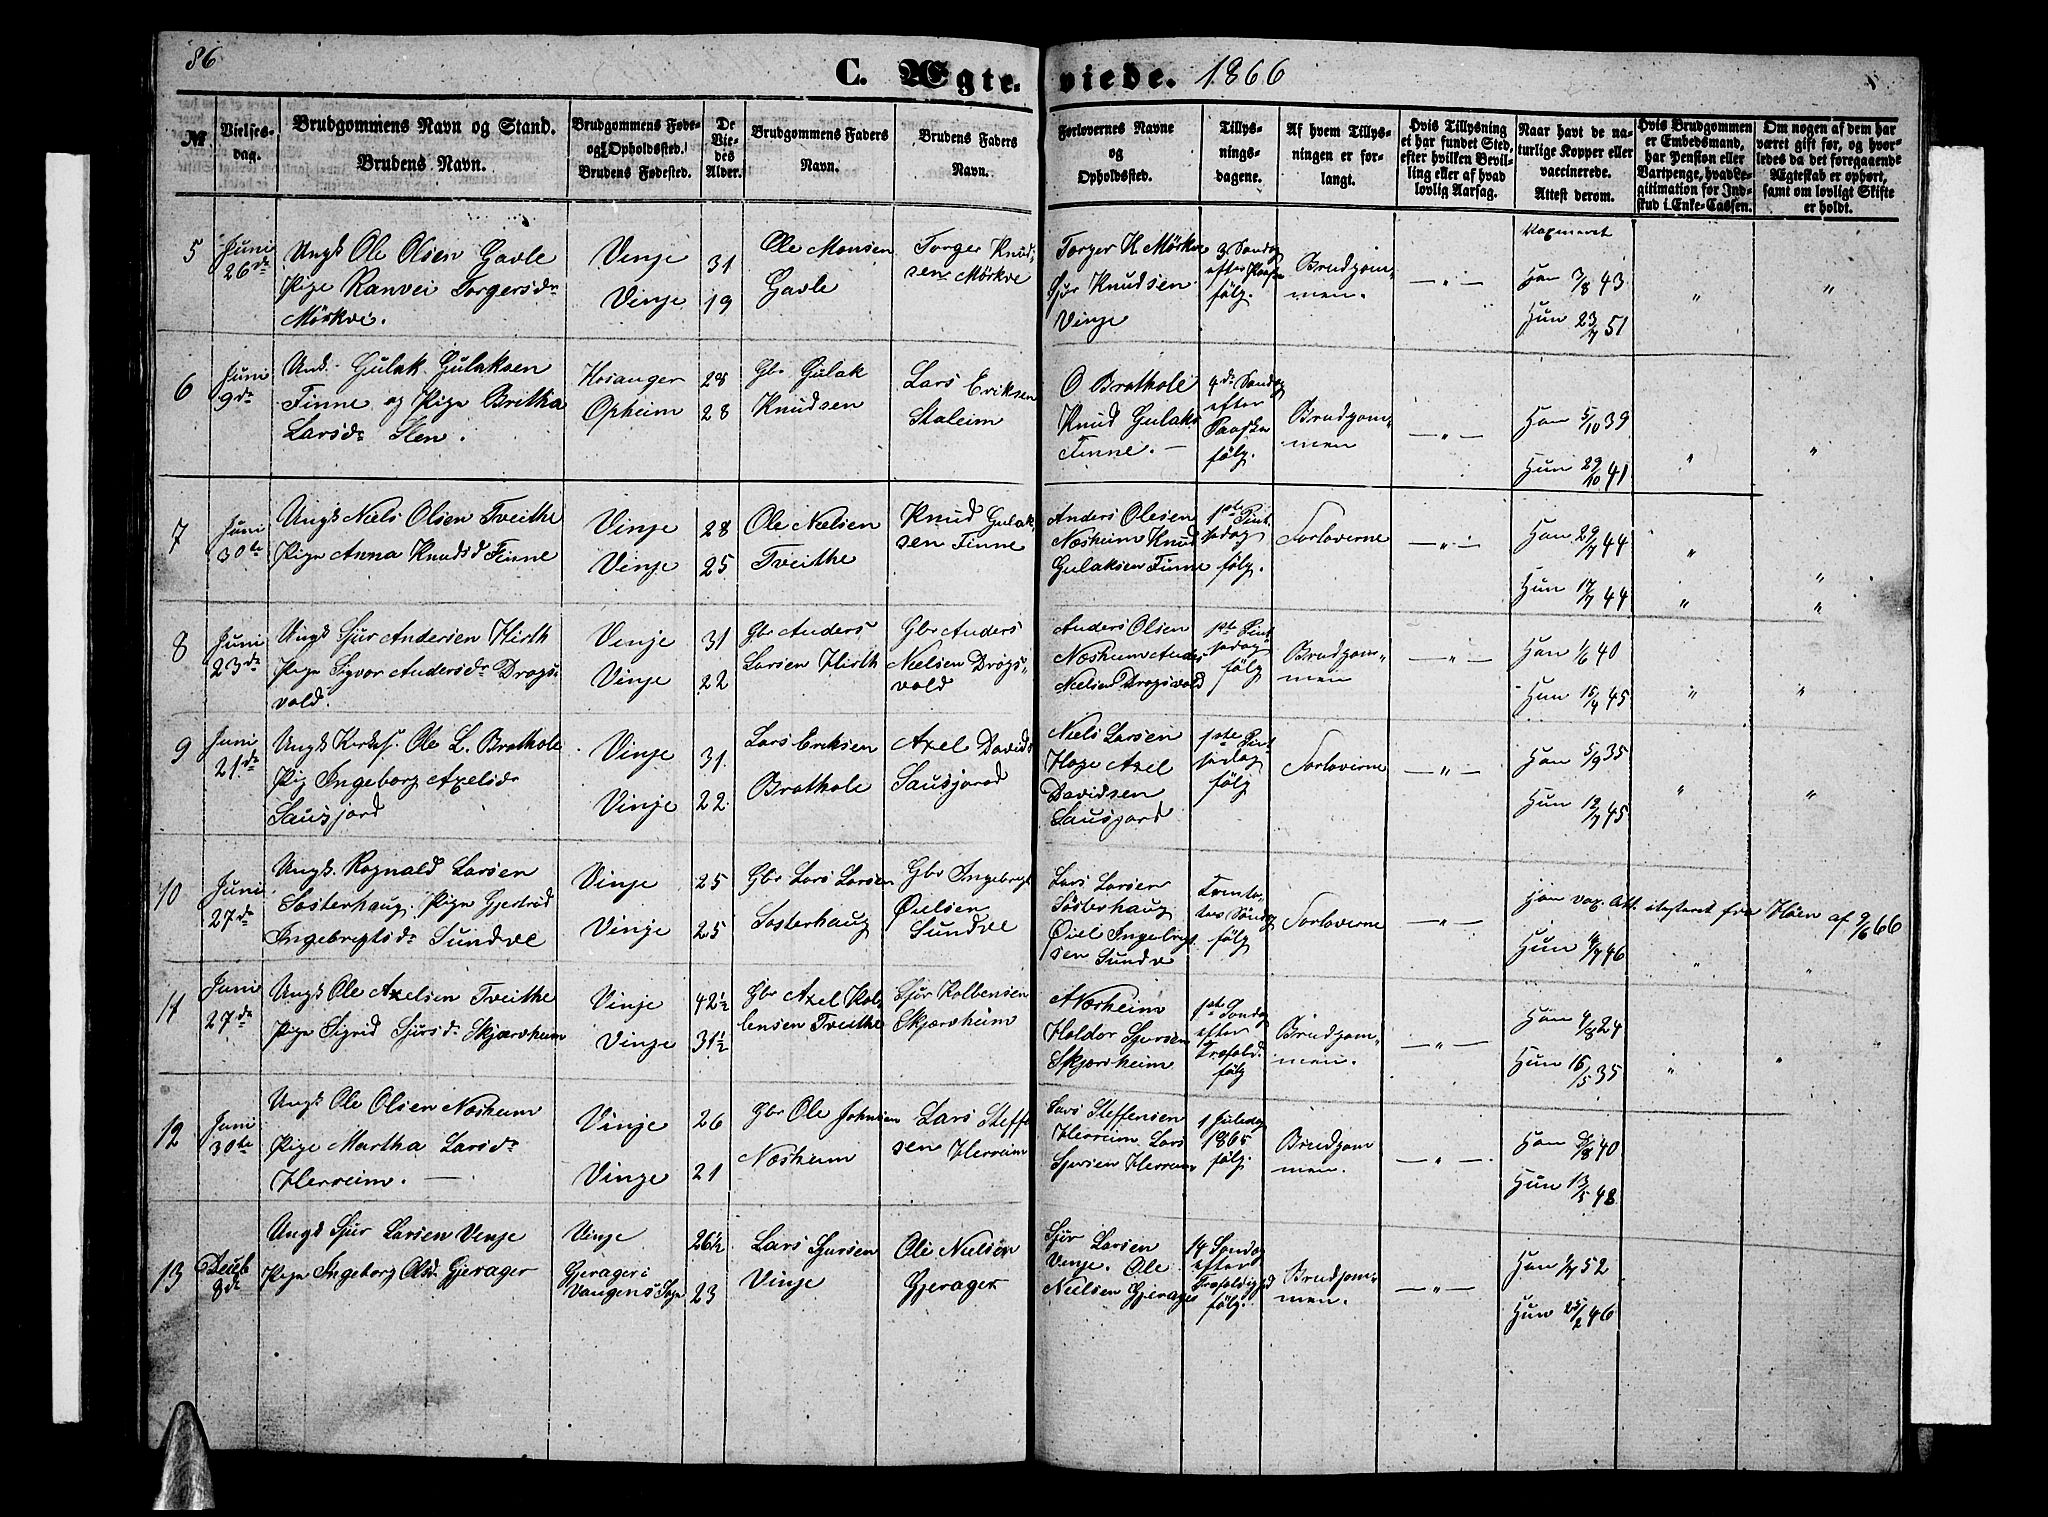 86
C. Ægte-
viede. 1866
№
Vielses-
dag.
Brudgommens Navn og Stand.
Brudens Navn.
Brudgommens Føde-
og Opholdssted.
Brudens Fødested.
De
Vie-
des
Alder.
Brudgommens Faders
Navn.
Brudens Faders
Navn.
Forlovernes Navne
og
Opholdssted.
Tillys-
nings-
dagene.
Af hvem Tillys-
ningen er for-
langt.
Hvis Tillysning
ei har fundet Sted,
efter hvilken Bevil-
ling eller af hvad
lovlig Aarsag.
Naar havt de na-
turlige Kopper eller
vaccinerede.
Attest derom.
Hvis Brudgommen
er Embedsmand,
har Pension eller
Vartpenge, hvad Le-
gitimation for Ind-
skud i Enke-Cassen.
Om nogen af dem har
været gift før, og hvor-
ledes da det foregaaende
Ægteskab er ophørt,
samt om lovligt Skifte
er holdt.
5
Juni
26de
Ungk Ole Olsen Gavle
Pige Ranvei Torgersdr
Mørkve.
Vinje
Vinje
31
19
Ole Monsen
Gavle
Torger Knud-
sen Mörkve
Torger K. Mörkve
Sjur Knudsen
Vinje
3 Søndag
efter Paaske
følg.
Brudgom-
men.
— " —
Vaxineret
Han 3/8 43
Hun 23/7 51
"
"
6
Juni
9de
Ungk. Gulak Gulaksen
Finne og Pige Britha
Larsdr Sten.
Hosanger
Opheim
28
28
Gbr Gulak
Knudsen
Lars Eriksen
Staleim
O Brathole
Knud Gulaks
Finne. —
4de Søndag
efter
Paaske
følg.
Brudgom-
men
— " —
Han 5/10 39
Hun 29/10 41
"
"
7
Juni
30te
Ungk Niels Olsen Tveithe
Pige Anna Knudsd Finne
Vinje
Vinje
28
25
Ole Nielsen
Tveithe
Knud Gulak-
sen Finne
Anders Olesen
Næsheim Knud
Gulaksen Finne
1ste Pint-
sedag
følg.
Forloverne
— " —
Han 29/7 44
Hun 17/7 44
"
"
8
Juni
23de
Ungk Sjur Andersen Hirth
Pige Sigvor Andersdr Drags-
vold.
Vinje
Vinje
31
22
Gbr Anders
Larsen Hirth
Gbr Anders
Nielsen Drags-
vold
Anders Olsen
Næsheim Anders
Nielsen Dragsvold
1ste Pint-
sedag
følg
Brudgom-
men
— " —
Han 1/6 40
Hun 15/7 45
"
"
9
Juni
21de
Ungk Kirkes. Ole L. Brathole
Pig Ingeborg Axelsdr
Sausjord
Vinje
Vinje
31.
22.
Lars Eriksen
Brathole
Axel Davids
Sausjord
Niels Larsen
Hage Axel
Davidsen
Sausjord
1ste Pint-
sedag
følg
Forloverne
— " —
Han 5/9 35
Hun 12/7 45
"
"
10
Juni
27de
Ungk. Ragnald Larsen
Sosterhaug. Pige Gjertrud
Ingebrigtsdr Sundve
Vinje
Vinje
25
25
Gbr Lars Larsen
Sosterhaug
Gbr Ingebrigt
Øielsen
Sundve
Lars Larsen
Sösterhaug
Öiel Ingebrigt
sen Sundve
Trinita-
tes Søndag
følg
Forloverne
— " —
Han vax. Att. itesteret fra Höen af 9/6 66
Hun 4/7 46
"
"
11
Juni
27de
Ungk Ole Axelsen Tveithe
Pige Sigrid Sjursdr Skjærvheim
Vinje
Vinje
42½
31½
Gbr Axel Kol-
bensen Tveithe
Sjur Kolbensen
Skjærvheim
A Næsheim
Haldor Sjursen
Skjærvheim
1ste Søndag
efter
Trefold.
følg
Brudgom-
men.
— " —
Han 4/8 24
Hun 16/5 35
"
"
12
Juni
30te
Ungk Ole Olsen Næsheim
Pige Martha Larsdr
Herreim. —
Vinje
Vinje
26
21
Gbr Ole Johnsen
Næsheim
Lars Steffe
sen Herreim
Lars Steffensen
Herreim Lars
Sjursen Herreim
1 Juledag
1865
følg.
Brudgom
men.
— " —
Han 9/8 40
Hun 13/5 48
13
Deceb
8de
Ungk Sjur Larsen Vinje
Pige Ingeborg Olsdr Gjerager
Vinje
Gjerager i
Vangens Sogn
26½
23
Lars Sjursen
Vinje
Ole Nielsen
Gjerager
Sjur Larsen
Vinje. Ole
Nielsen Gjerager
14 Søndag
efter
Trefoldighed
følg.
Brudgom-
men.
— " —
Han 1/7 52
Hun 25/2 46